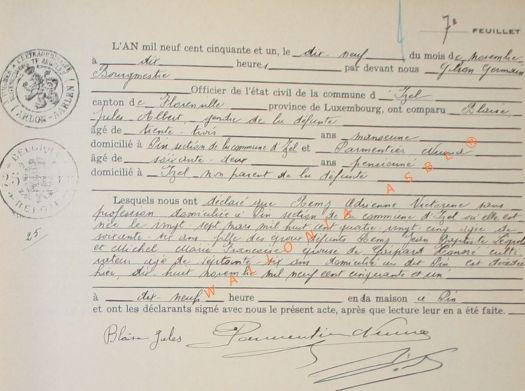 7e
FEUILLET
L'AN mil neuf cent cinquante et un, le dix neuf du mois de Novembre
à dix heures par devant nous Gilson Germain
Bourgmestre
Officier de l'état civil de la commune d Izel
canton de Florenville province de Luxembourg, ont comparu Blaise
Jules Albert, gendre de la défunte
âgé de trente trois ans manoeuvre
domicilié à Pin section de la commune d'Izel et Parmentier
âgé de soixante deux ans pensionné
domicilié à Izel non parent de la défunte
Lesquels nous ont déclaré que Adrienne Victorine sans
profession domiciliée à Pin section de la commune d'Izel où elle est
née le vingt sept mars mil huit cent quatre vingt cinq âgée de
soixante six ans fille des époux défunts Jean Baptiste
et Michel Marie épouse de culti
vateur âgé de septante six ans domicilié au dit Pin est décédée
hier, dix huit novembre mil neuf cent cinquante et un
à dix neuf heure en da maison à Pin
et ont les déclarants signé avec nous le présent acte, après que lecture leur en a été faite.
Blaise Jules Parmentier
ARLON-AARLEN
BELGIQUE
25
WALLONIA ASBL ®